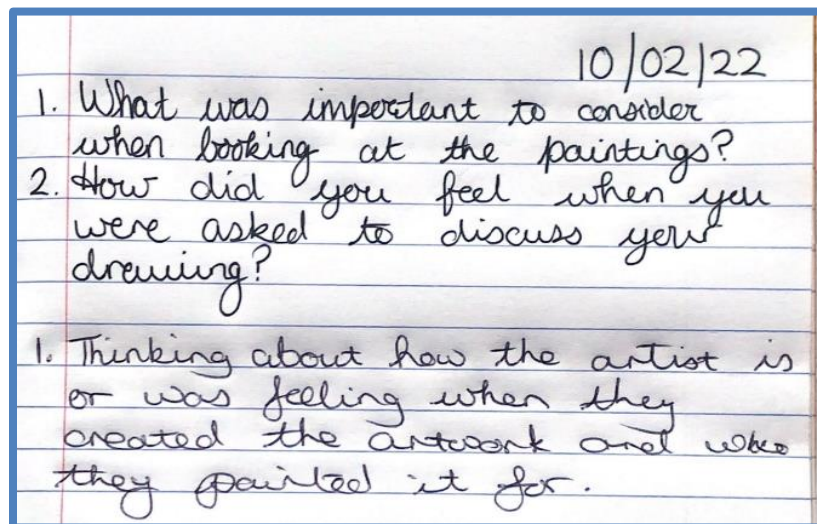 10/02/22
1. What was important to consider
when looking at the paintings?
2. How did you feel when you
were asked to discuss your
drawing?
1. Thinking about how the artist is
or was feeling when they
created the artwork and who
they painted it for.